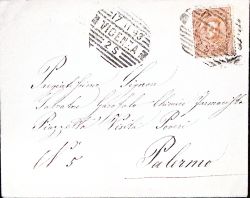 17 11 93
VICENZA
2 S
Pregiatissimo Signor
Salvatore Garofalo Chimico Farmacista
Piazzetta Visita Poveri
N° 5
Palermo